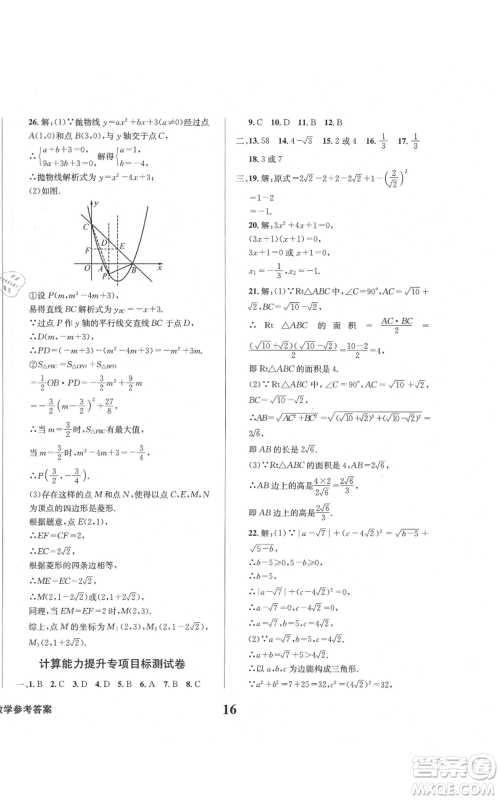 26. 解:(1)∵抛物线 y=ax²+bx+3(a≠0)经过点
A(1,0)和点 B(3,0),与 y 轴交于点 C,
∴{a+b+3=0, 9a+3b+3=0, 解得{a=1, b=-4.
∴抛物线解析式为 y=x²-4x+3.
(2)如图.
y
C
D
E
F
O
A
P
B
x
①设 P(m,m²-4m+3),
易得直线 BC 解析式为 y_BC=-x+3.
∵过点 P 作 y 轴的平行线交直线 BC 于点 D,
∴D(m,-m+3).
∴PD=(-m+3)-(m²-4m+3)=-m²+3m.
②S△PBC=S△CPD+S△BPD
=1/2 OB·PD=-3/2 m²+9/2 m
=-3/2(m-3/2)²+27/8.
∴当 m=3/2 时,S△PBC 有最大值,
当 m=3/2 时,m²-4m+3=-3/4.
∴P(3/2,-3/4).
(3)存在这样的点 M 和点 N,使得以 C、E、M、N
为顶点的四边形是菱形.
根据题意,点 E(2,1),
∴EF=CF=2,
∴EC=2√2,
根据菱形的四条边相等,
∴ME=EC=2√2,
∴M(2,1-2√2)或(2,1+2√2),
同理,当 EM=EF=2 时,M(2,3).
综上,点 M 的坐标为 M₁(2,3),M₂(2,1-2√2),
M₃(2,1+2√2).
计算能力提升专项目标测试卷
一、1. B 2. C 3. D 4. D 5. D 6. B 7. B 8. C
9. C 10. D 11. B 12. B
二、13. 58 14. 4-√3 15. 2或4 16. 1/3 17. 1/3
18. 3或7
三、19. 解:原式=2√2-2+1-2√2-(√2/√2)²
=1-2
=-1.
20. 解:3x²+4x+1=0,
(3x+1)(x+1)=0,
x₁=-1/3,x₂=-1.
21. 解:(1)∵Rt△ABC 中,∠C=90°,AC=√10+
√2,BC=√10-√2,
∴ Rt △ABC 的面积 = AC·BC/2 =
(√10+√2)(√10-√2)/2=4,
即 Rt△ABC 的面积是 4.
(2)∵Rt△ABC 中,∠C=90°,AC=√10+√2,
BC=√10-√2,
∴AB=√(AC²+BC²)=√((√10+√2)²+(√10-√2)²)
=2√6.
即 AB 的长是 2√6.
∴AB 边上的高是 4×2/2√6=2√6/3.
即 AB 边上的高是 2√6/3.
22. 解:(1)∵|a-√7|+(c-4√2)²=√(b-5)+
√(5-b),
∴b-5≥0,5-b≥0,
∴b=5,
∴|a-√7|+(c-4√2)²=0,
∴a=√7,c=4√2.
(2)∵a=√7,b=5,c=4√2,
∴√7+5>4√2,
∴以 a,b,c 为边能构成三角形.
∵a²+b²=7+25=32,c²=(4√2)²=32,
∴a²+b²=c²,
数学参考答案
16